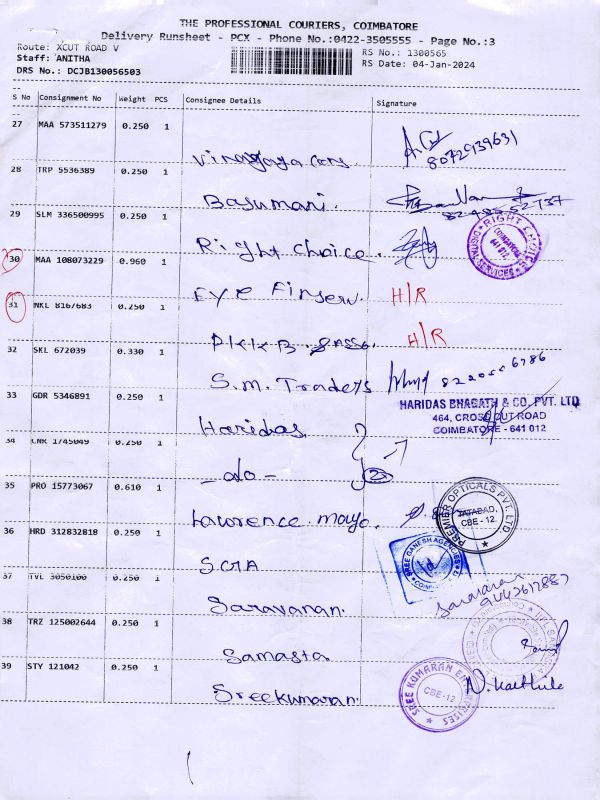 THE PROFESSIONAL COURIERS, COIMBATORE
Delivery Runsheet - PCX - Phone No.:0422-3505555 - Page No.:3
Route: XCUT ROAD V
RS No.: 1300565
Staff: ANITHA
RS Date: 04-Jan-2024
DRS No.: DCJB130056503
S No Consignment No Weight PCS Consignee Details Signature
27 MAA 573511279 0.250 1
Vinayaga Cars
28 TRP 5536389 0.250 1
Basumani.
29 SLM 336500995 0.250 1
Right choice.
30 MAA 108073229 0.960 1
Eye Finserv. H/R
31 NKL 8167683 0.250 1
H/R
32 SKL 672039 0.330 1
S.M. Traders
33 GDR 5346891 0.250 1
HARIDAS BHAGATH & CO. PVT. LTD
464, CROSS CUT ROAD
COIMBATORE - 641 012
Haridas
34 CNK 1745049 0.250 1
- do -
35 PRO 15773067 0.610 1
PREMIER OPTICALS PVT. LTD
TATABAD,
CBE - 12.
Lawrence mayo.
36 HRD 312832818 0.250 1
SREE GANESH AGENCIES
SGA
37 TVL 3050100 0.250 1
Saravanan
Saravanan.
38 TRZ 125002644 0.250 1
Samasta
39 STY 121042 0.250 1
SREE KUMARAN ENTERPRISES
CBE-12
Sreekumaran